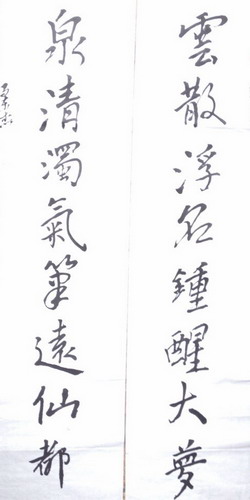 雲散浮名鍾醒大夢
泉清濁氣筆遠仙都